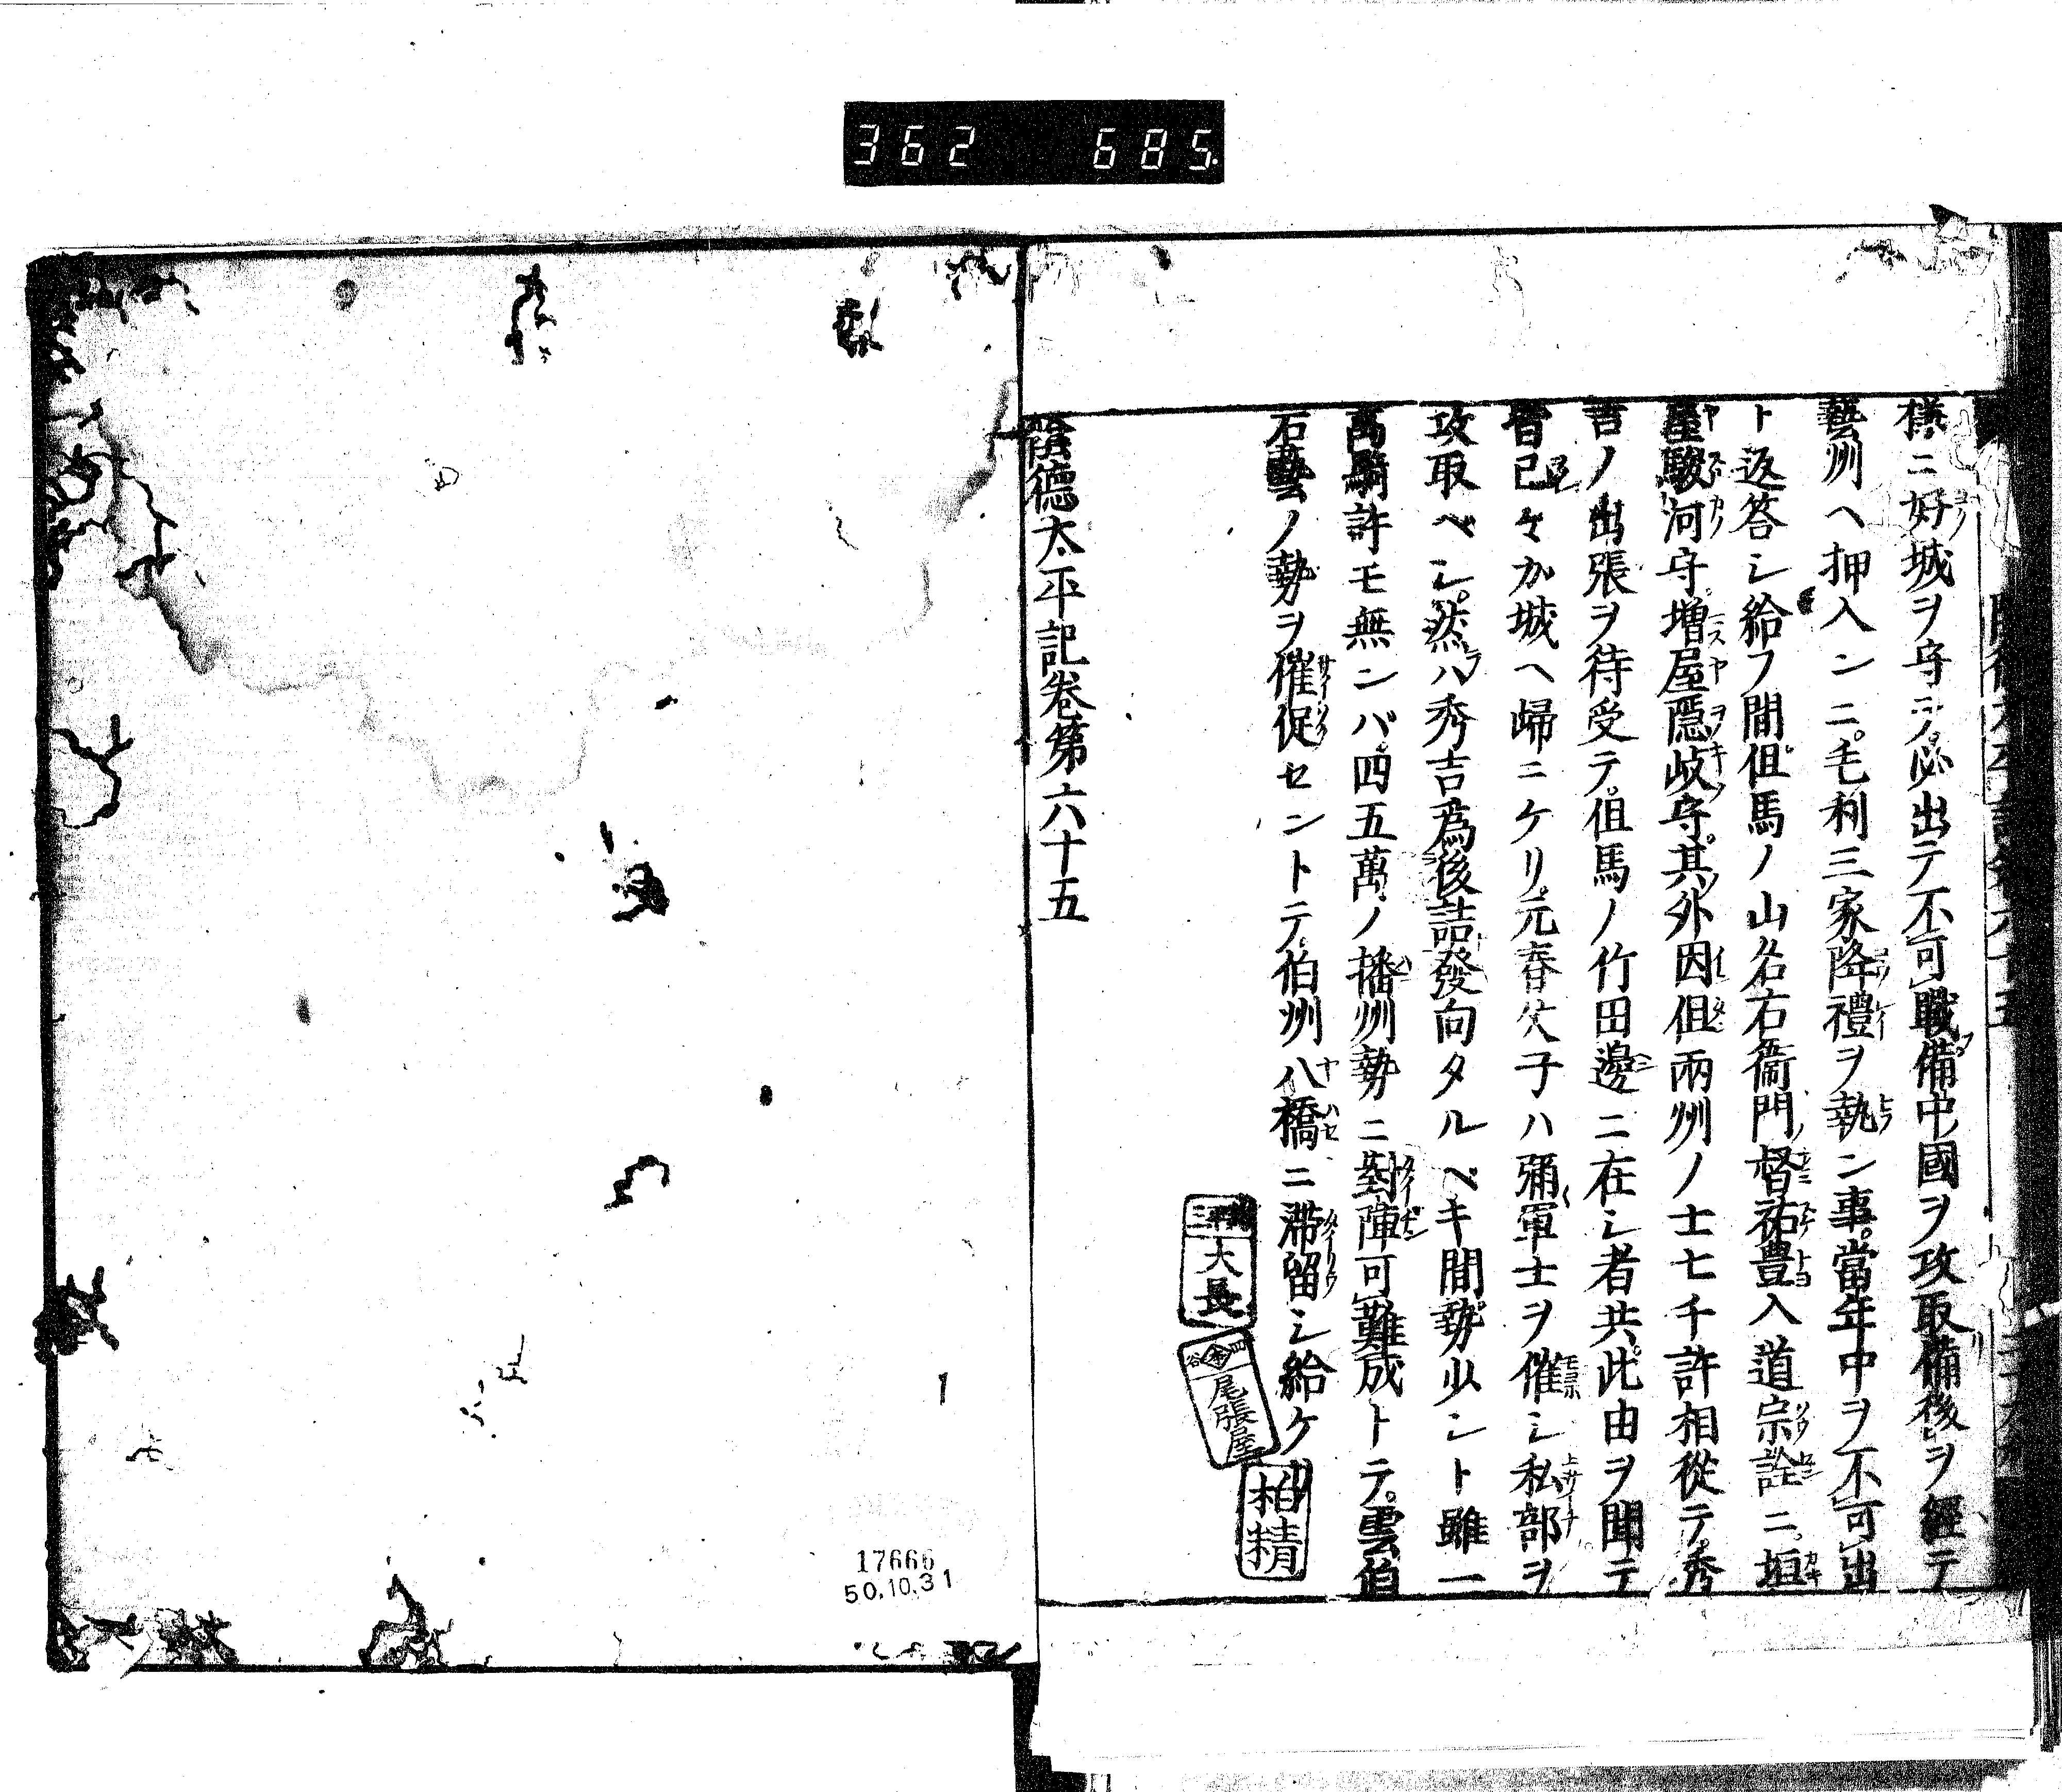 362 685
樣ニ好城ヲ守ラノ必出テ不可戰備中國ヲ攻取備後ヲ經テ
藝州ヘ押入ンニ毛利三家降禮ヲ執ン事當年中ヲ不可出
ト返答シ給フ間但馬ノ山名右衞門督祐豊入道宗詮ニ垣
屋駿河守増屋隱岐守其外因但兩州ノ士七千許相從テ秀
吉ノ出張ヲ待受テ但馬ノ竹田邊ニ在シ者共此由ヲ聞テ
皆己々カ城ヘ歸ニケリ元春父子ハ彌軍士ヲ催シ私部ヲ
攻取ベシ然ハ秀吉爲後詰發向タルベキ間勢少シト雖一
萬騎許モ無ンバ四五萬ノ播州勢ニ對陣可難成トテ雲伯
石藝ノ勢ヲ催促セントテ伯州八橋ニ滯留シ給ケリ
大長
尾張屋
柏精
陰德太平記卷第六十五
17666
50.10.31